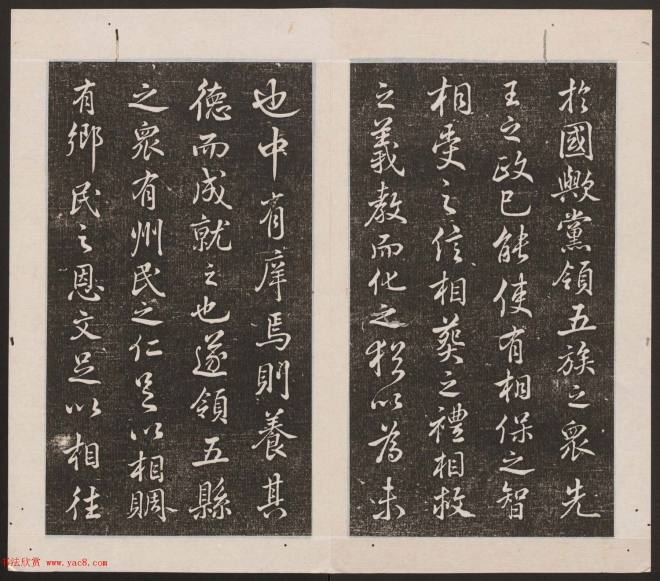 於國歟黨領五族之衆先
王之政已能使有相保之智
相受之信相葬之禮相救
之義教而化之猶以爲未
也中有庠焉則養其
德而成就之也遂領五縣
之衆有州民之仁足以相賙
有鄉民之恩文足以相往
书法欣赏 www.yac8.com